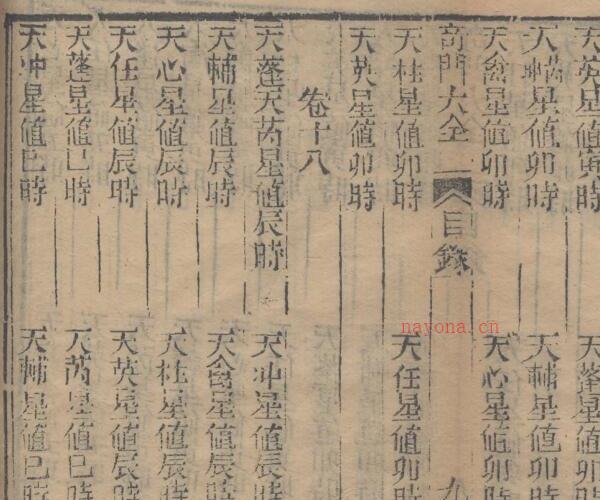 天英星值寅時
天蓬星值卯
天星值卯時
天輔星值卯時
天禽星值卯時
天心星值卯時
奇門大全 目錄 九
天柱星值卯時
天任星值卯時
天英星值卯時
卷十八
天蓬天芮星值辰時
天冲星值辰時
天輔星值辰時
天禽星值辰時
天心星值辰時
天柱星值辰時
天任星值辰時
天英星值辰時
天蓬星值巳時
天芮星值巳時
天冲星值巳時
天輔星值巳時
nayona.cn